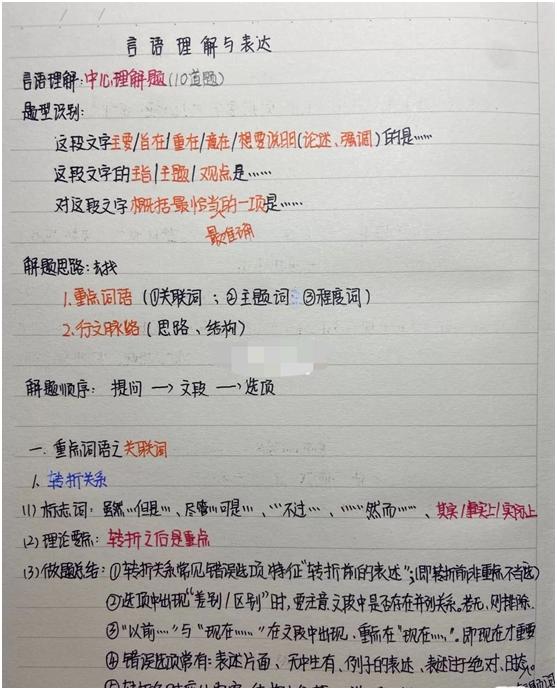 言语理解与表达
言语理解:中心理解题(10道题)
题型识别:
这段文字主要/旨在/重在/意在/想要说明(论述、强调)的是……
这段文字的主旨/主题/观点是……
对这段文字概括最恰当的一项是……
最准确
解题思路:去找
1.重点词语(①关联词;②主题词;③程度词)
2.行文脉络(思路、结构)
解题顺序:提问→文段→选项
一.重点词语之关联词
1.转折关系
(1)标志词:虽然…但是…、尽管…可是…、…不过…、……然而……、其实/事实上/实际上
(2)理论要点:转折之后是重点
(3)做题总结:①转折关系常见错误选项特征“转折前的表述”;(即转折前非重点不当选)
②选项中出现“差别/区别”时,要注意文段中是否存在并列关系。若无,则排除.
③“以前……”与“现在……”在文段中出现,重点在“现在……”。即现在才重要
④错误选项常有:表述片面、无中生有、例子的表述、表述过于绝对、